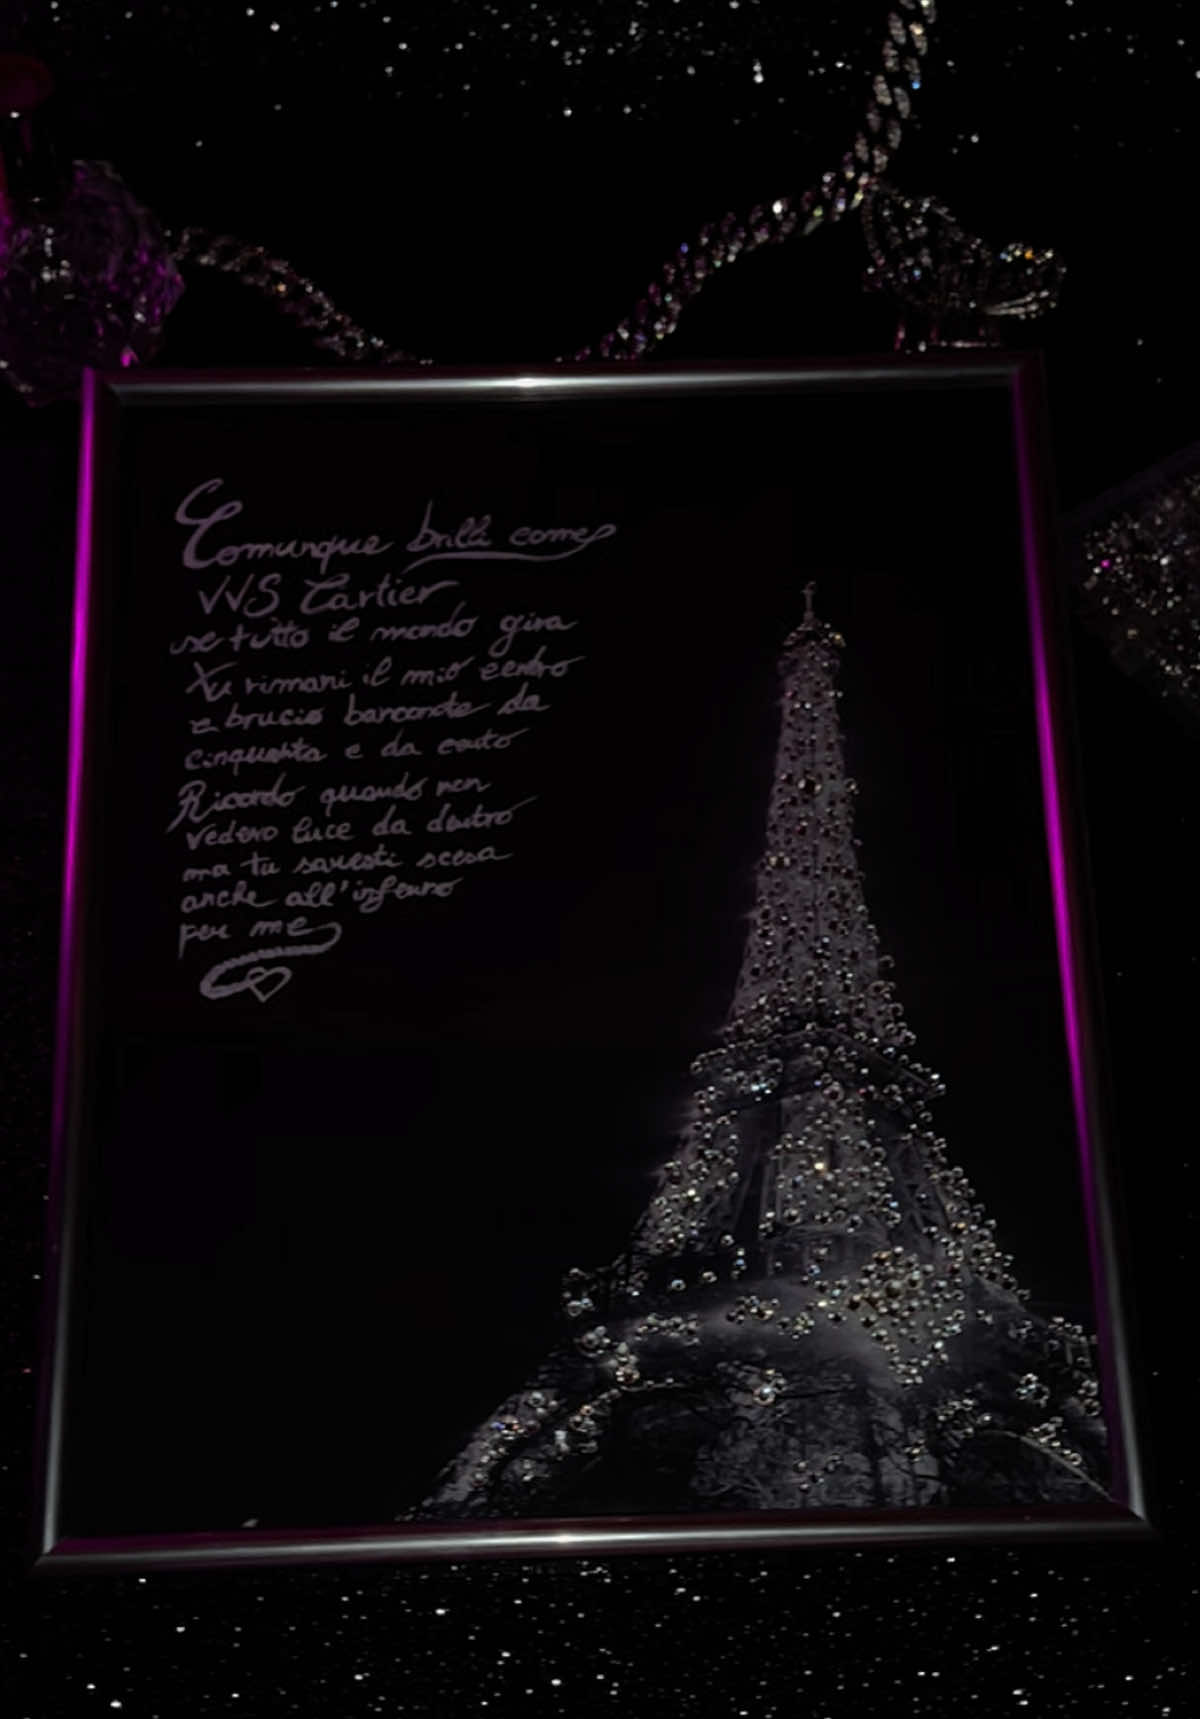 Comunque brilli come
VVS Cartier
se tutto il mondo gira
tu rimani il mio centro
e brucio banconote da
cinquanta e da cento
Ricordo quando non
vedevo luce da dentro
ma tu saresti scesa
anche all'inferno
per me